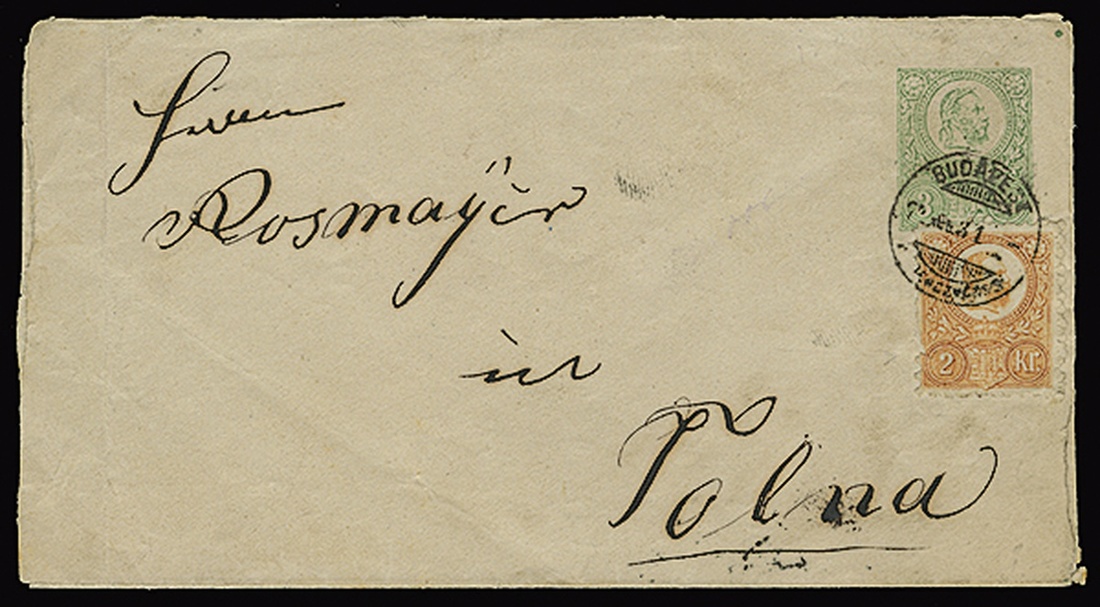 Herrn
Rosmayer
in
Tolna
3
BUDAPEST
2 Kr.